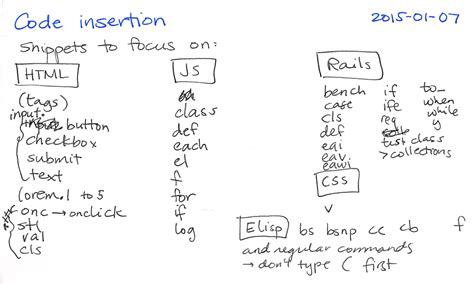 Code insertion
2015-01-07
Snippets to focus on:
HTML
(tags)
input:
button
checkbox
submit
text
lorem.1 to 5
onc → onclick
stl
val
cls
JS
class
def
each
el
f
for
if
log
Rails
bench if to_
case ife when
cls req while
def y
eai test class
eav > collections
eawi
CSS
v
Elisp bs bsnp cc cb f
and regular commands
→ don't type C first